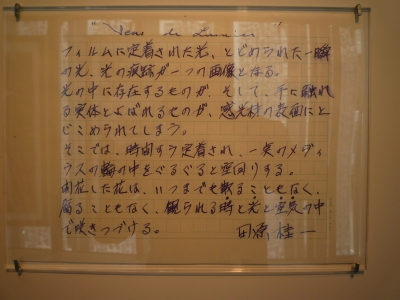 "Vens de Lumière"
フィルムに定着された光、とどめられた一瞬
の光、光の痕跡が一つの画像となる。
光の中に存在するものが、そして、手に触れ
る実体とよばれるものが、感光材の表面にと
じこめられてしまう。
そこでは、時間すら定着され、一気のメヴィ
ウスの輪の中をぐるぐると空回りする。
開花した花は、いつまでも散ることもなく、
腐ることもなく、観られる時と光と重度の中
で咲きつづける。
田原桂一